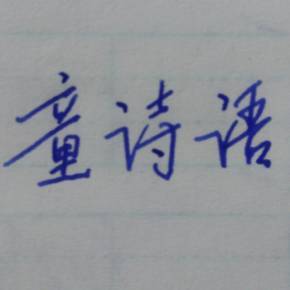 童诗语